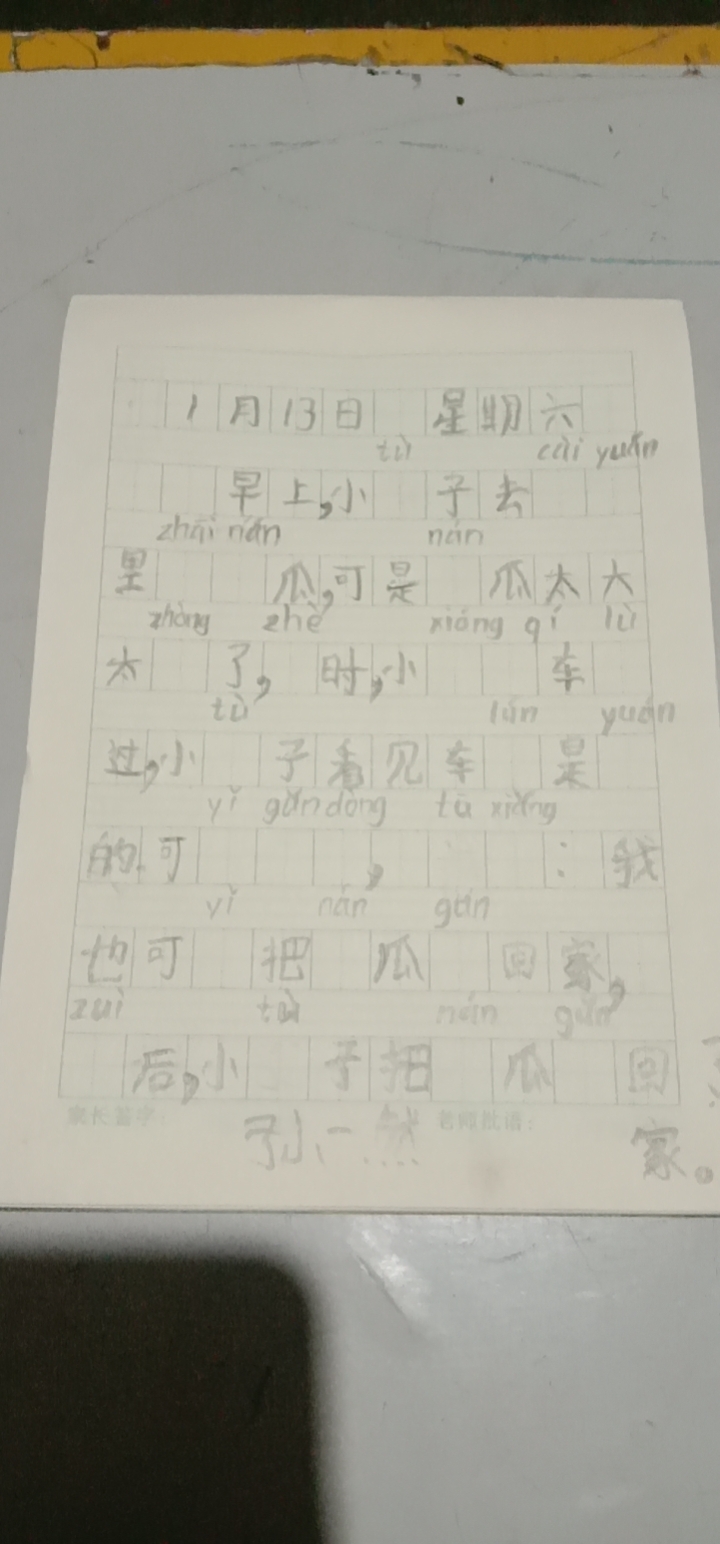 1月13日 星期六
tù cài yuán
早上,小 子去
zhāi nán nán
里 瓜,可是 瓜太大
zhòng zhè xióng qí lù
太 了, 时,小 车
tù lún yuán
过,小 子看见车 是
yǐ gǔn dòng tū xiǎng
的.可 , : 我
yǐ nán gǔn
也可 把 瓜 回家,
zuì tù nán gǔn
后,小 子把 瓜 回
家长签字: 老师批语:
家。